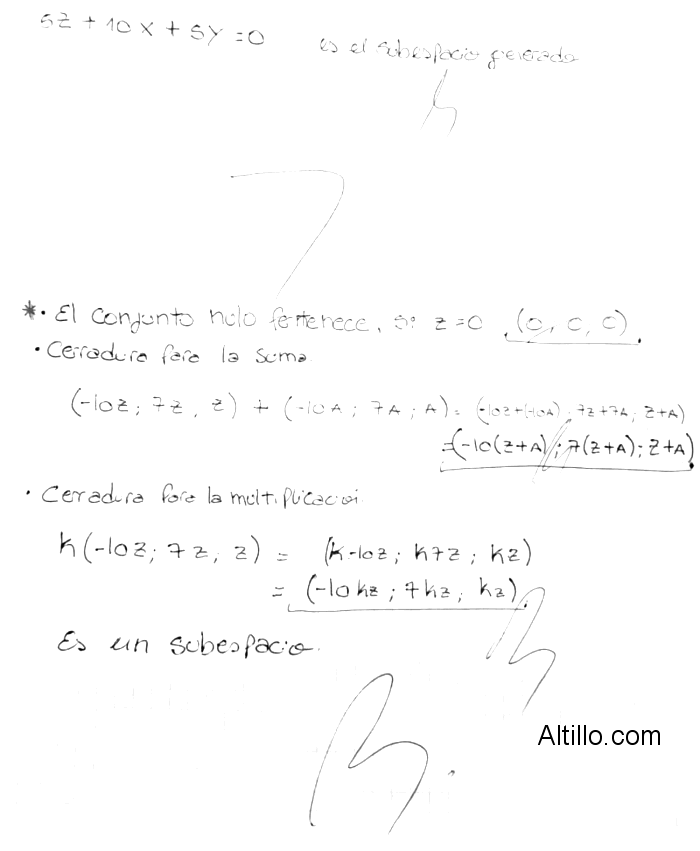 5z + 10x + 5y = 0 es el subespacio generado
* · El conjunto nulo pertenece. si z = 0 (0, 0, 0).
· Cerradura para la suma
(-10z; 7z, z) + (-10A; 7A; A) = (-10z+(-10A); 7z+7A; z+A)
= (-10(z+A); 7(z+A); z+A).
· Cerradura para la multiplicación
k(-10z; 7z, z) = (k-10z; k7z; kz)
= (-10kz; 7kz; kz).
Es un subespacio.
B.
Altillo.com